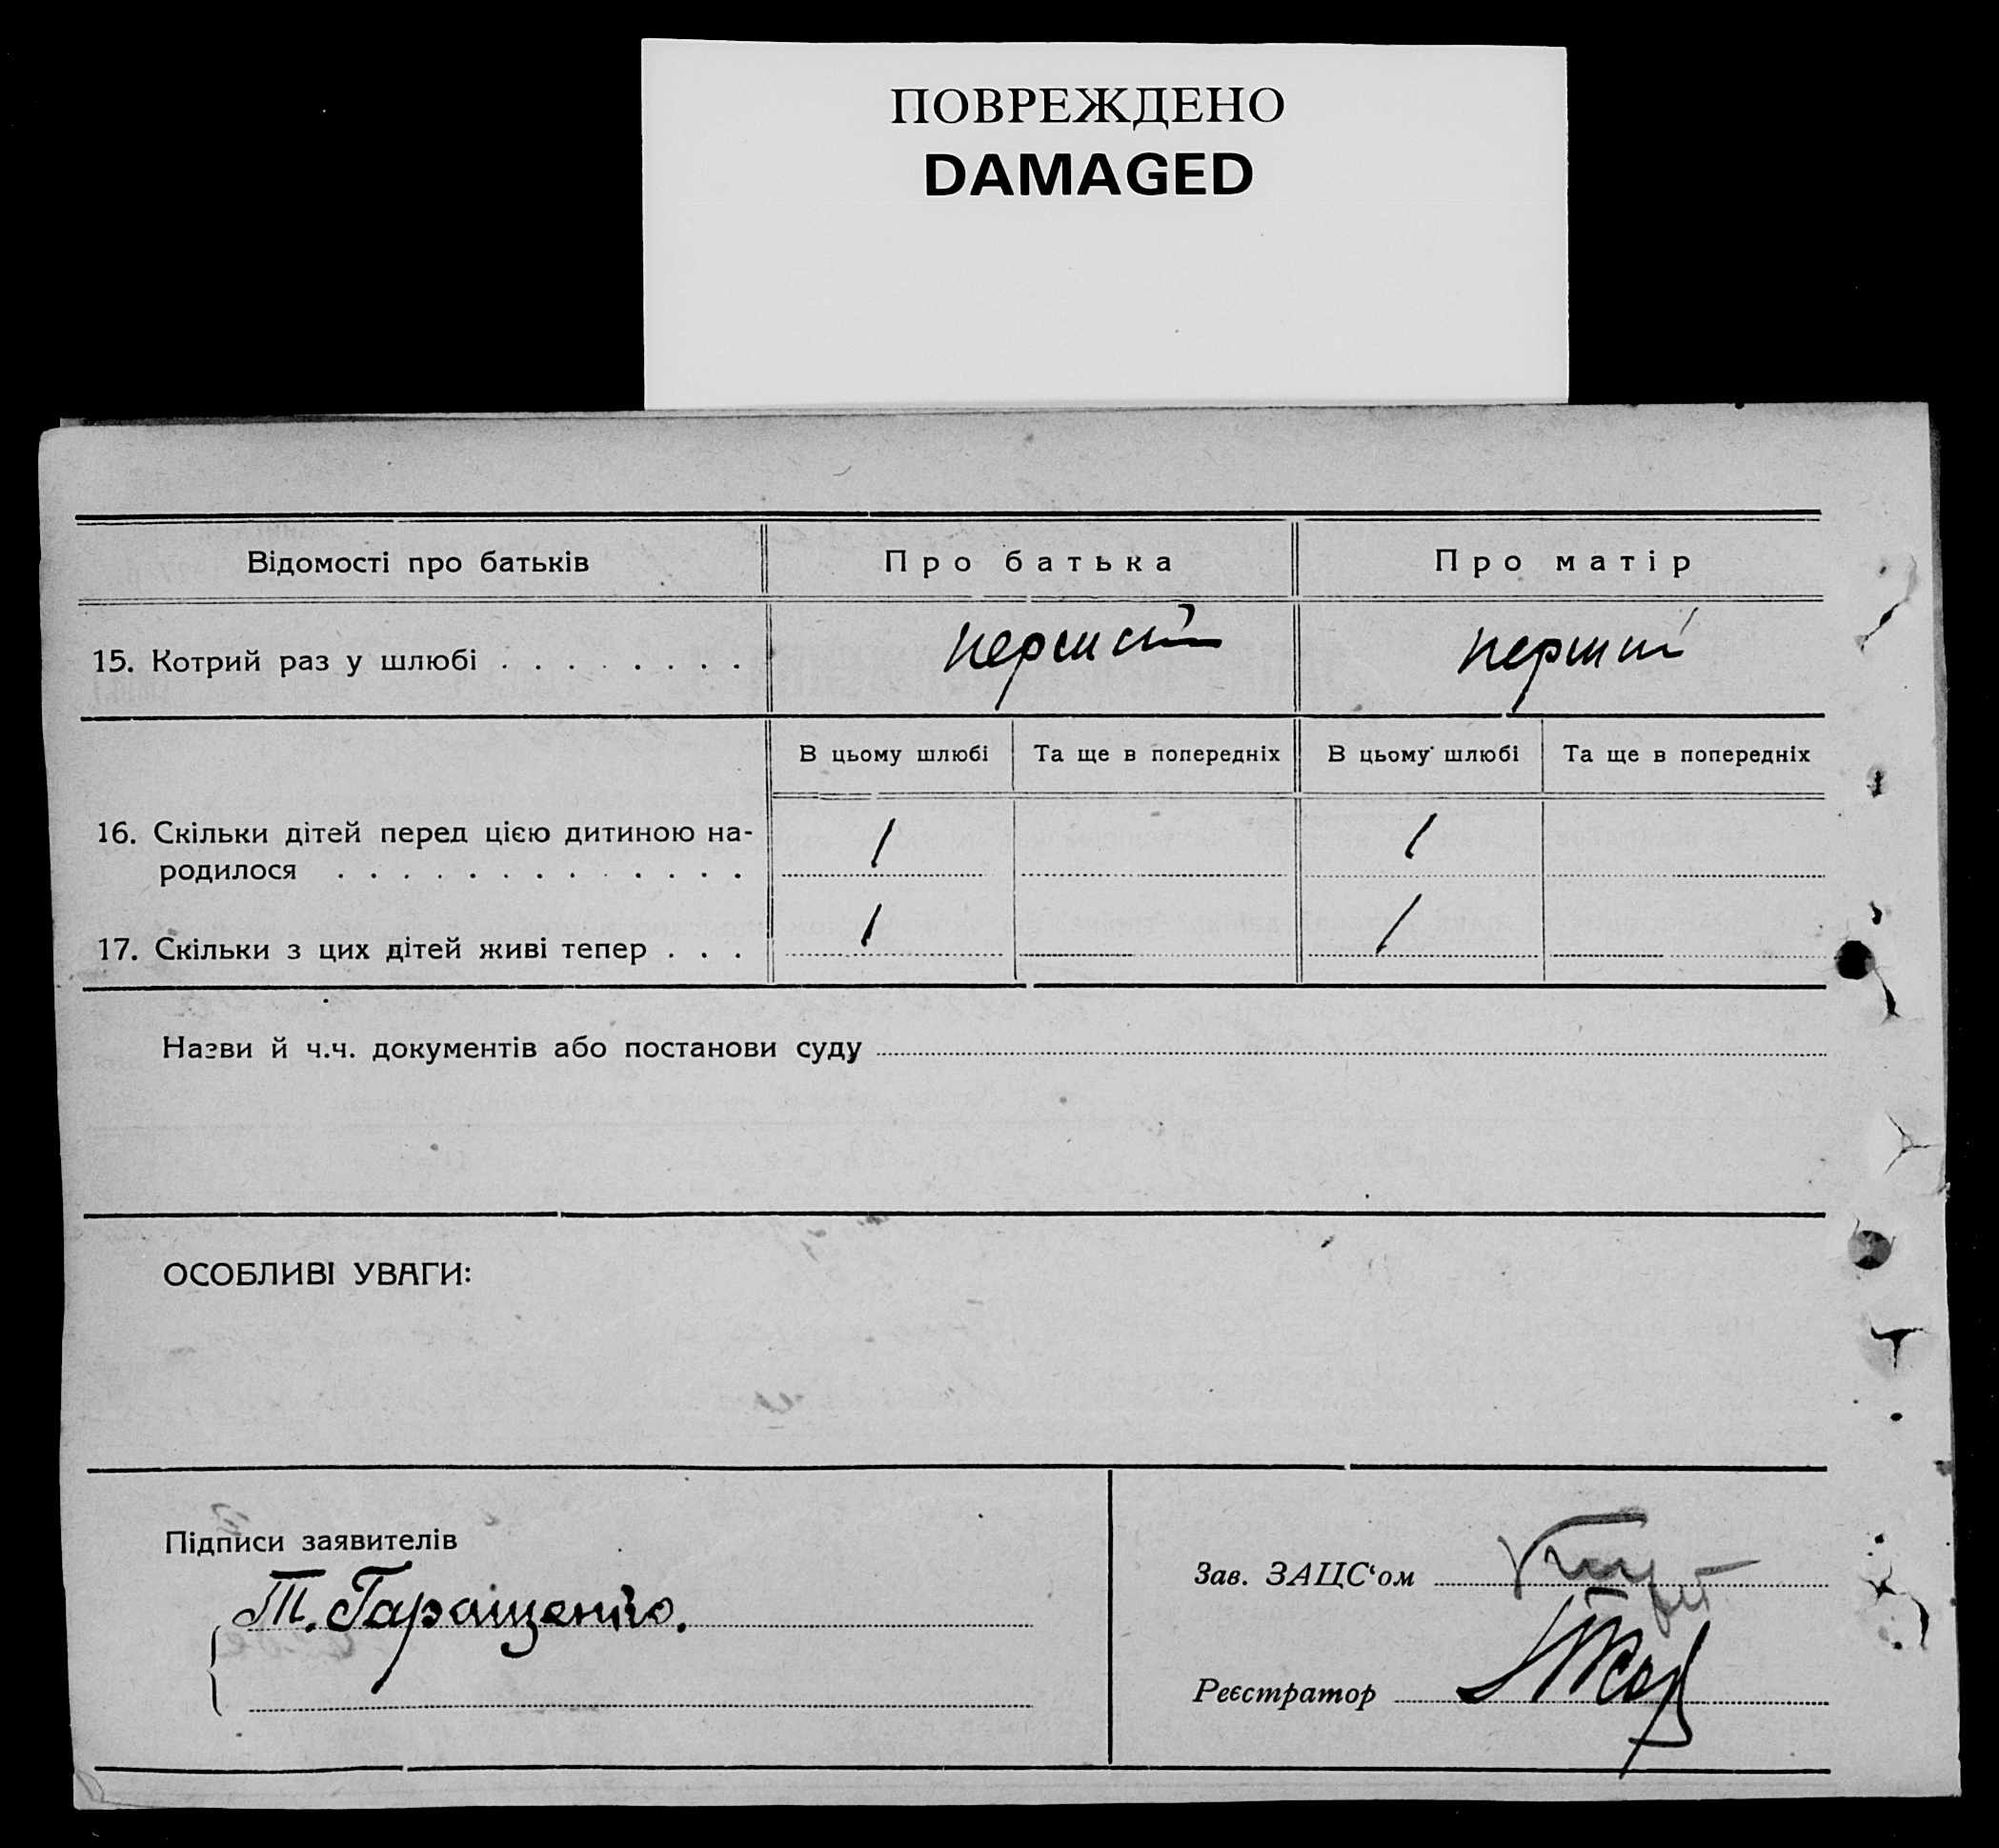 ПОВРЕЖДЕНО
DAMAGED
Відомості про батьків
Про батька
Про матір
15. Котрий раз у шлюбі . . . . . . . .
перший
перший
В цьому шлюбі
Та ще в попередніх
В цьому шлюбі
Та ще в попередніх
16. Скільки дітей перед цією дитиною на-
родилося . . . . . . . . . . . . . .
1
1
17. Скільки з цих дітей живі тепер . . .
1
1
Назви й ч.ч. документів або постанови суду
ОСОБЛИВІ УВАГИ:
Підписи заявителів
Т. Гаращенко.
Зав. ЗАЦС‘ом
Реєстратор